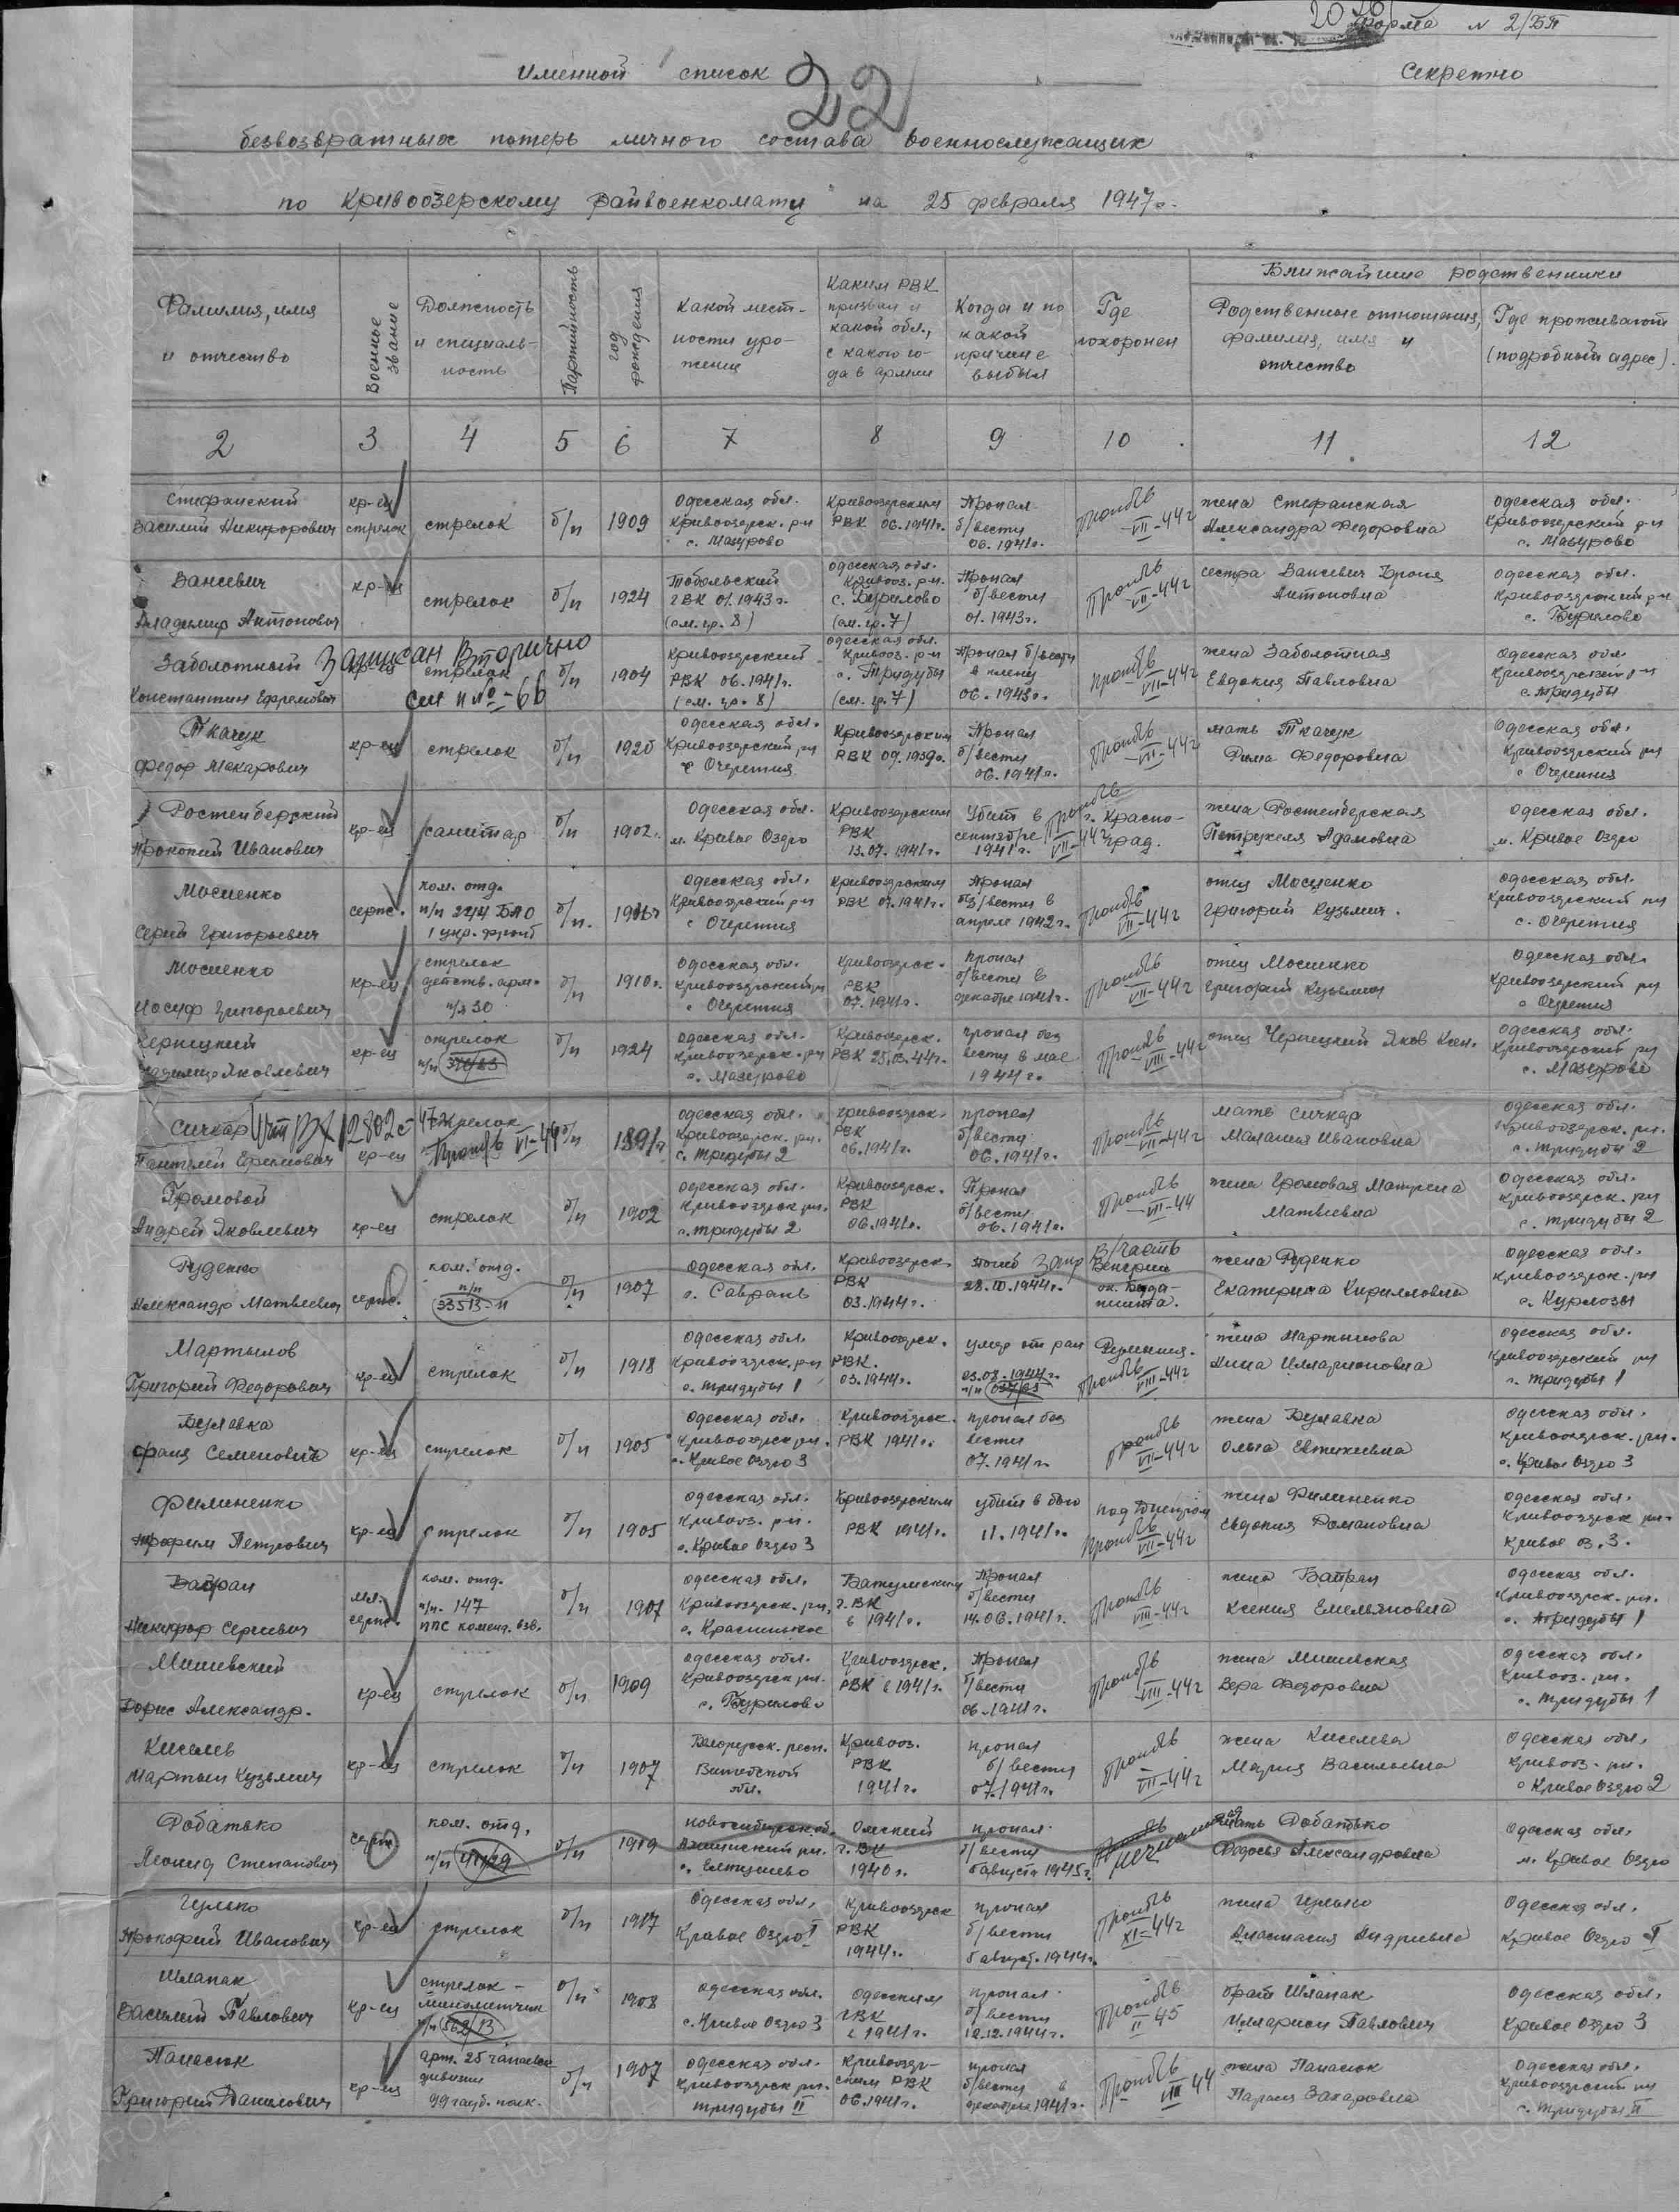 Форма № 2/БП
Именной список
22
Секретно
безвозвратных потерь личного состава военнослужащих
по Кривоозерскому райвоенкомату на 25 февраля 1947 г.
Фамилия, имя и отчество
Военное звание
Должность и специальность
Партийность
год рождения
Какой местности уроженец
Каким РВК призван и какой обл., с какого года в армии
Когда и по какой причине выбыл
Где похоронен
Ближайшие родственники
Родственные отношения, фамилия, имя и отчество
Где проживают (подробный адрес).
2 3 4 5 6 7 8 9 10 11 12
Стефанский Василий Никифорович кр-ец стрелок стрелок б/п 1909 Одесская обл. Кривоозерск. р-н с. Мазурово Кривоозерским РВК 06.1941г. Пропал б/вести 06.1941г. Пропбв VII-44г жена Стефанская Александра Федоровна Одесская обл. Кривоозерский р-н с. Мазурово
Вансевич Владимир Антонович кр-ец стрелок б/п 1924 Тобольский ГВК 01.1943г. (см. гр. 8) Одесская обл. Кривооз. р-н. с. Бурилово (см. гр. 7) Пропал б/вести 01.1943г. Пропбв VII-44г сестра Вансевич Броня Антоновна Одесская обл. Кривоозерский р-н с. Бурилово
Заболотный Константин Ефремович Записан Вторично см № -66 кр-ец стрелок б/п 1904 Кривоозерский РВК 06.1941г. (см. гр. 8) Одесская обл. Кривооз. р-н с. Тридубы (см. гр. 7) Пропал б/вести в плену 06.1943г. Пропбв VII-44г жена Заболотная Евдокия Павловна Одесская обл. Кривоозерский р-н с. Тридубы
Ткачук Федор Макарович кр-ец стрелок б/п 1920 Одесская обл. Кривоозерский р-н с Очеретня Кривоозерским РВК 09.1939г. Пропал б/вести 06.1941г. Пропбв VII-44г мать Ткачук Фима Федоровна Одесская обл. Кривоозерский р-н с Очеретня
Ростенберский Прокопий Иванович кр-ец санитар б/п 1902г. Одесская обл. м. Кривое Озеро Кривоозерским РВК 13.07.1941г. Убит в сентябре 1941г. Пропбв VII-44г г. Красноград. жена Ростенберская Петрунеля Адамовна Одесская обл. м. Кривое Озеро
Мосиенко Сергий Григорьевич серж. ком. отд. п/п 244 БАО 1 укр. фронт б/п. Одесская обл. Кривоозерский р-н с Очеретня Кривоозерским РВК 07.1941г. Пропал без/вести в апреле 1942г. Пропбв VII-44г отец Мосиенко Григорий Кузьмич. Одесская обл. Кривоозерский р-н с. Очеретня
Мосиенко Иосиф Григорьевич кр-ец стрелок действ. арм. п/я 30 б/п 1910г. Одесская обл. Кривоозерский р-н с Очеретня Кривоозерск. РВК 07.1941г. Пропал б/вести в декабре 1941г. Пропбв VII-44г отец Мосиенко Григорий Кузьмич Одесская обл. Кривоозерский р-н с Очеретня
Черницкий Яковлевич кр-ец стрелок п/п б/п 1924 Одесская обл. Кривоозерск. р-н с. Мазурово Кривоозерск. РВК 25.03.44г. пропал без вести в мае 1944г. Пропбв VIII-44г отец Черницкий Яков Ксен. Одесская обл. Кривоозерский р-н с. Мазурово
Сичкар Пантелей Ефимович 12802с-47 кр-ец стрелок Пропбв VII-44 б/п 1891г Одесская обл. Кривоозерск. р-н. с. Тридубы 2 Кривоозерск. РВК 06.1941г. пропал б/вести 06.1941г. Пропбв VII-44г мать Сичкар Малания Ивановна Одесская обл. Кривоозерск. р-н. с. Тридубы 2
Громовой Андрей Яковлевич кр-ец стрелок б/п 1902 Одесская обл. Кривоозерск р-н. с. Тридубы 2 Кривоозерск. РВК 06.1941г. Пропал б/вести 06.1941г. Пропбв VII-44 жена Громовая Матрена Матвеевна Одесская обл. Кривоозерск. р-н с. Тридубы 2
Руденко Александр Матвеевич серж. ком. отд. п/п 33513-И б/п 1907 Одесская обл. с. Саврань Кривоозерск. РВК 03.1944г. погиб 28.XI.1944г. Запр В/Часть Венгрия ок. Будапешта. жена Руденко Екатерина Кирилловна Одесская обл. Кривоозерск. р-н с. Курлозы
Мартынов Григорий Федорович кр-ец стрелок б/п 1918 Одесская обл. Кривоозерск. р-н с. Тридубы 1 Кривоозерск. РВК. 03.1944г. умер от ран 03.07.1944г. п/п Румыния. Пропбв VIII-44г жена Мартынова Нина Илларионовна Одесская обл. Кривоозерский р-н с. Тридубы 1
Булавка Франц Семенович кр-ец стрелок б/п 1905 Одесская обл. Кривоозерск р-н. с. Кривое Озеро 3 Кривоозерск. РВК 1941г. пропал без вести 07.1941г. Пропбв VII-44г жена Булавка Ольга Евтихиевна Одесская обл. Кривоозерск. р-н. с. Кривое Озеро 3
Филиненко Трофим Петрович кр-ец стрелок б/п 1905 Одесская обл. Кривооз. р-н. с. Кривое Озеро 3 Кривоозерским РВК 1941г. убит в бою 11.1941г. под Днепром Пропбв VII-44г жена Филиненко Евдокия Романовна Одесская обл. Кривоозерск р-н. Кривое оз. 3.
Вайран Никифор Сергеевич мл. серж. ком. отд. п/п. 147 ППС коменд. взв. б/п 1907 Одесская обл. Кривоозерск. р-н, с. Красненькое Батумским ГВК в 1941г. Пропал б/вести 14.06.1941г. Пропбв VIII-44г жена Вайран Ксения Емельяновна Одесская обл. Кривоозерск. р-н. с. Тридубы 1
Мишевский Борис Александр. кр-ец стрелок б/п 1909 Одесская обл. Кривоозерск р-н. с. Бурилово Кривоозерск. РВК в 1941г. Пропал б/вести 06.1941г. Пропбв VIII-44г жена Мишевская Вера Федоровна Одесская обл. Кривооз. р-н. с. Тридубы 1
Киселев Мартын Кузьмич кр-ец стрелок б/п 1907 Белорусск. респ. Витебской обл. Кривооз. РВК 1941г. пропал б/вести 07.1941г. Пропбв VII-44г жена Киселева Мария Васильевна Одесская обл. Кривооз. р-н. с Кривое Озеро 2
Добатько Леонид Степанович серж. ком. отд. п/п б/п 1919 Новосибирск. об. р-н. Омский ГВК 1940г. пропал б/вести 6 августа 1943г. мать Добатько Федосья Александровна Одесская обл. м. Кривое Озеро
Гулько Прокофий Иванович кр-ец стрелок б/п 1917 Одесская обл. Кривое Озеро I Кривоозерск РВК 1944г. пропал б/вести август. 1944г. Пропбв XI-44г жена Гулько Анастасия Андреевна Одесская обл. Кривое Озеро I
Шлапак Василий Павлович кр-ец стрелок-минометчик п/п б/п 1908 Одесская обл. с. Кривое Озеро 3 Одесским ГВК в 1941г. пропал б/вести 12.12.1944г. Пропбв II 45 брат Шлапак Илларион Павлович Одесская обл. Кривое Озеро 3
Панасюк Григорий Данилович кр-ец арт. 25 чапаевск дивизии 99 гауб. полк. б/п 1907 Одесская обл. Кривоозерск р-н. Тридубы II Кривоозерским РВК 06.1941г. пропал б/вести в декабре 1941г. Пропбв VIII 44 жена Панасюк Параня Захаровна Одесская обл. Кривоозерский р-н с. Тридубы II